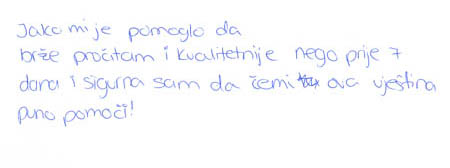 Jako mi je pomoglo da
brže pročitam i kvalitetnije nego prije 7
dana i sigurna sam da čemi ova vještina
puno pomoči!